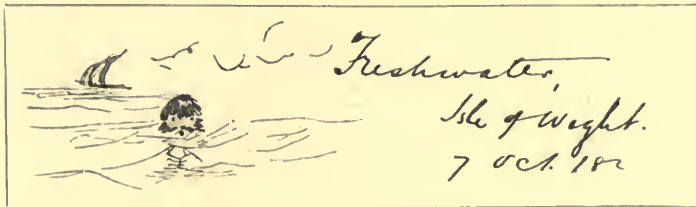 Freshwater,
Isle of Wight.
7 Oct. 18